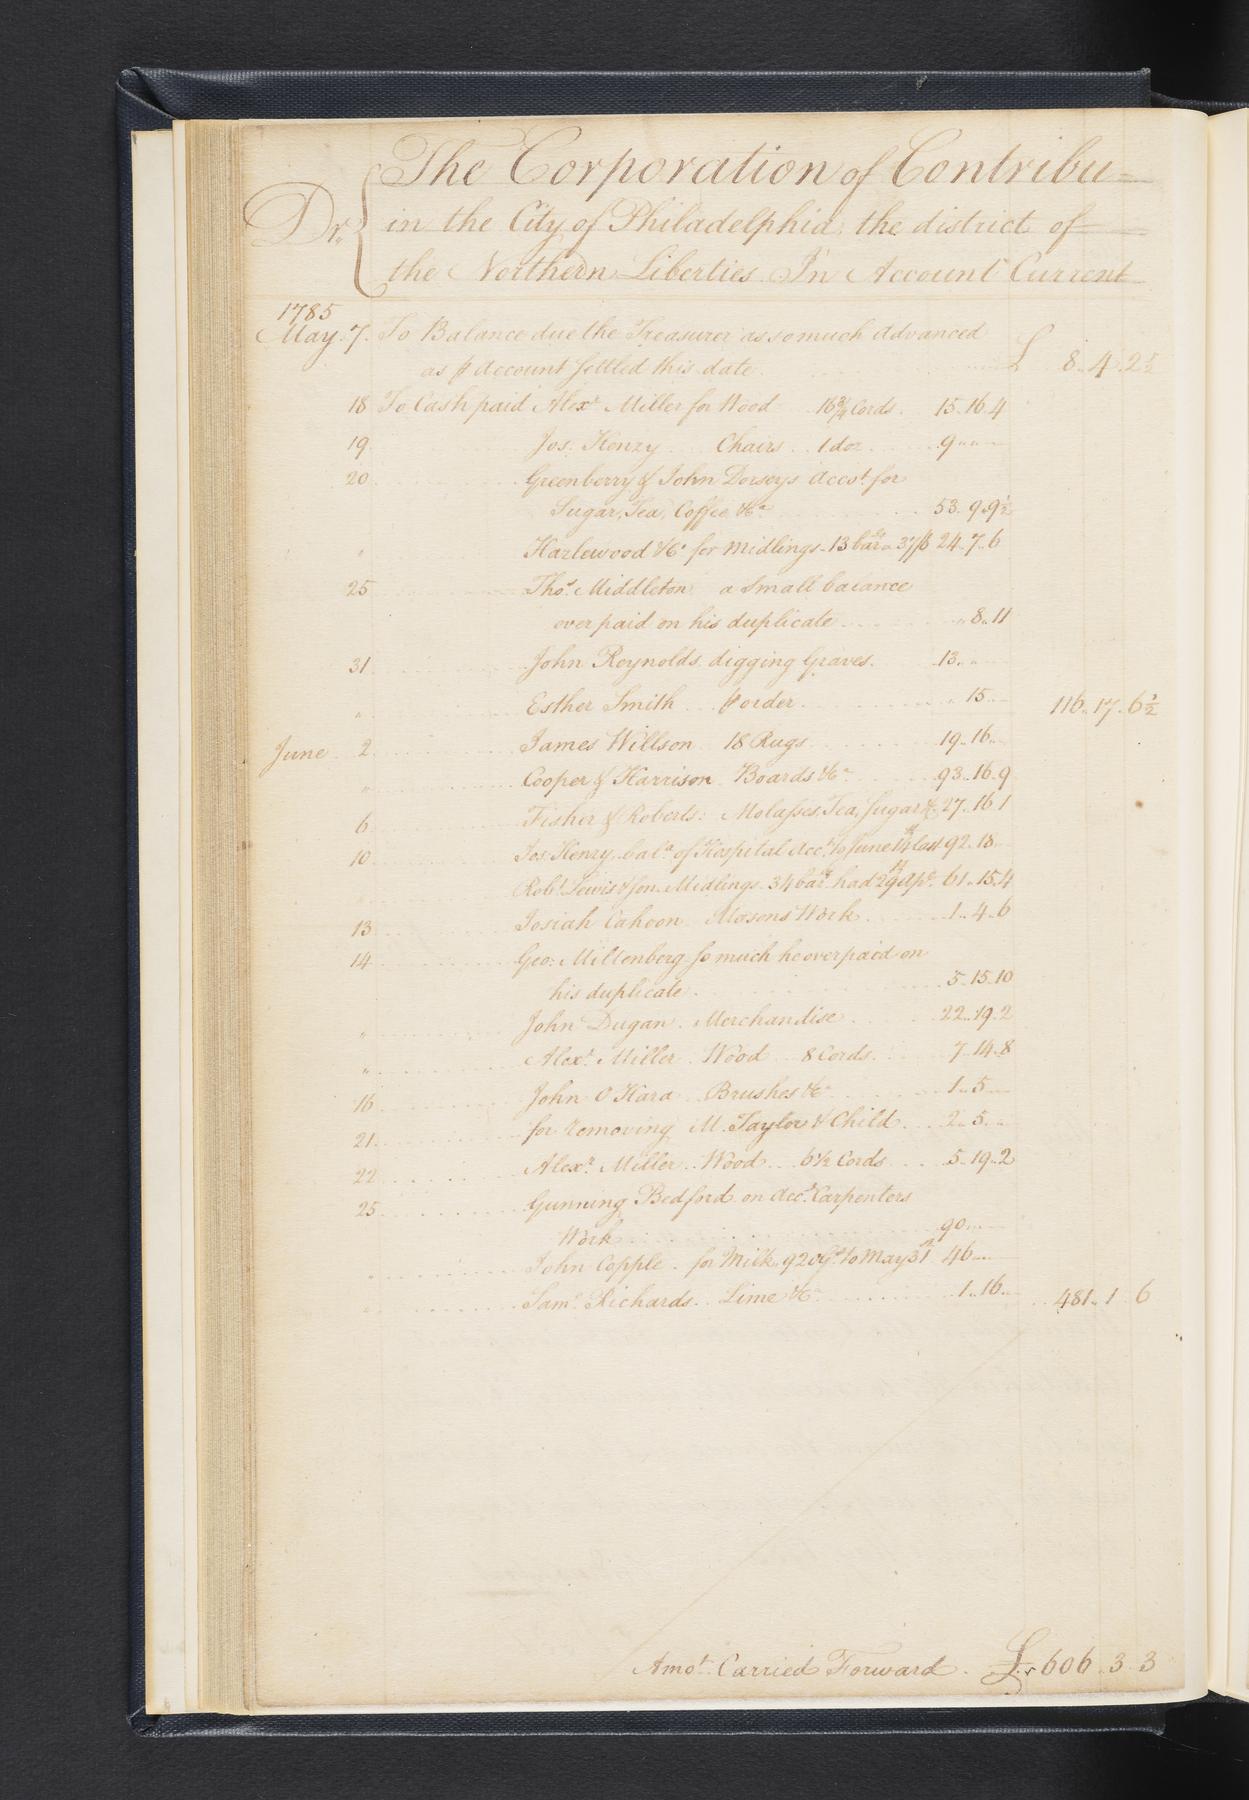 Dr.
The Corporation of Contribu=
in the City of Philadelphia, the district of
the Northern Liberties. In Account Current
1785
May 7. To Balance due the Treasurer as so much advanced
as ⅌ Account settled this date £ 8.. 4.. 2½
18 To Cash paid Alexr. Miller for Wood 16¾ Cords. 15.. 16.. 4
19 Jos: Henzy Chairs 1 doz 9 .. ..
20 Greenberry & John Dorseys Accot. for
Sugar, Tea, Coffee &ca. 53.. 9.. 9½
" Hazlewood &Co. for Midlings 13 bars. a 37/6 24.. 7.. 6
25 Thos. Middleton a Small balance
over paid on his duplicate .. 8.. 11
31 John Reynolds digging Graves. 13.. ..
" Esther Smith ⅌ order .. 15.. 116.. 17.. 6½
June 2 James Willson 18 Rugs 19.. 16..
" Cooper & Harrison Boards &ca. 93.. 16.. 9
6 Fisher & Roberts: Molasses, Tea, Sugar &c. 27.. 16.. 1
10 Jos: Henzy bala. of Hospital Acct. to June last 92.. 18..
" Robt. Lewis & Son Midlings 34 bars. had 61.. 15.. 4
13 Josiah Cahoon Masons Work 1.. 4.. 6
14 Geo: Miltenberg so much he overpaid on
his duplicate 5.. 15.. 10
" John Dugan Merchandise 22.. 19.. 2
" Alexr. Miller Wood 8 Cords. 7.. 14.. 8
16 John O'Hara Brushes &ca. 1.. 5..
21 for removing M. Taylor & Child 2.. 5..
22 Alexr. Miller Wood 6½ Cords 5.. 19.. 2
25 Gunning Bedford on Acct. Carpenters
Work 90.. ..
" John Copple for Milk to May 31st 46.. ..
" Saml. Richards Lime &ca. 1.. 16.. 481.. 1.. 6
Amot. Carried Forward. £ 606.. 3.. 3